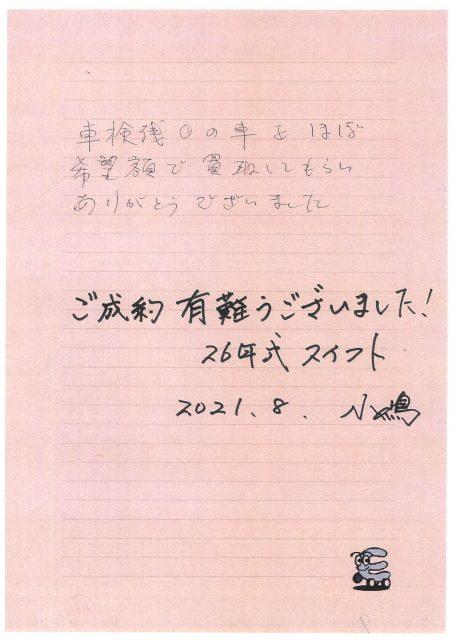 車検残0の車をほぼ
希望額で買取してもらい
ありがとうございました
ご成約 有難うございました!
26年式 スイフト
2021.8. 小嶋